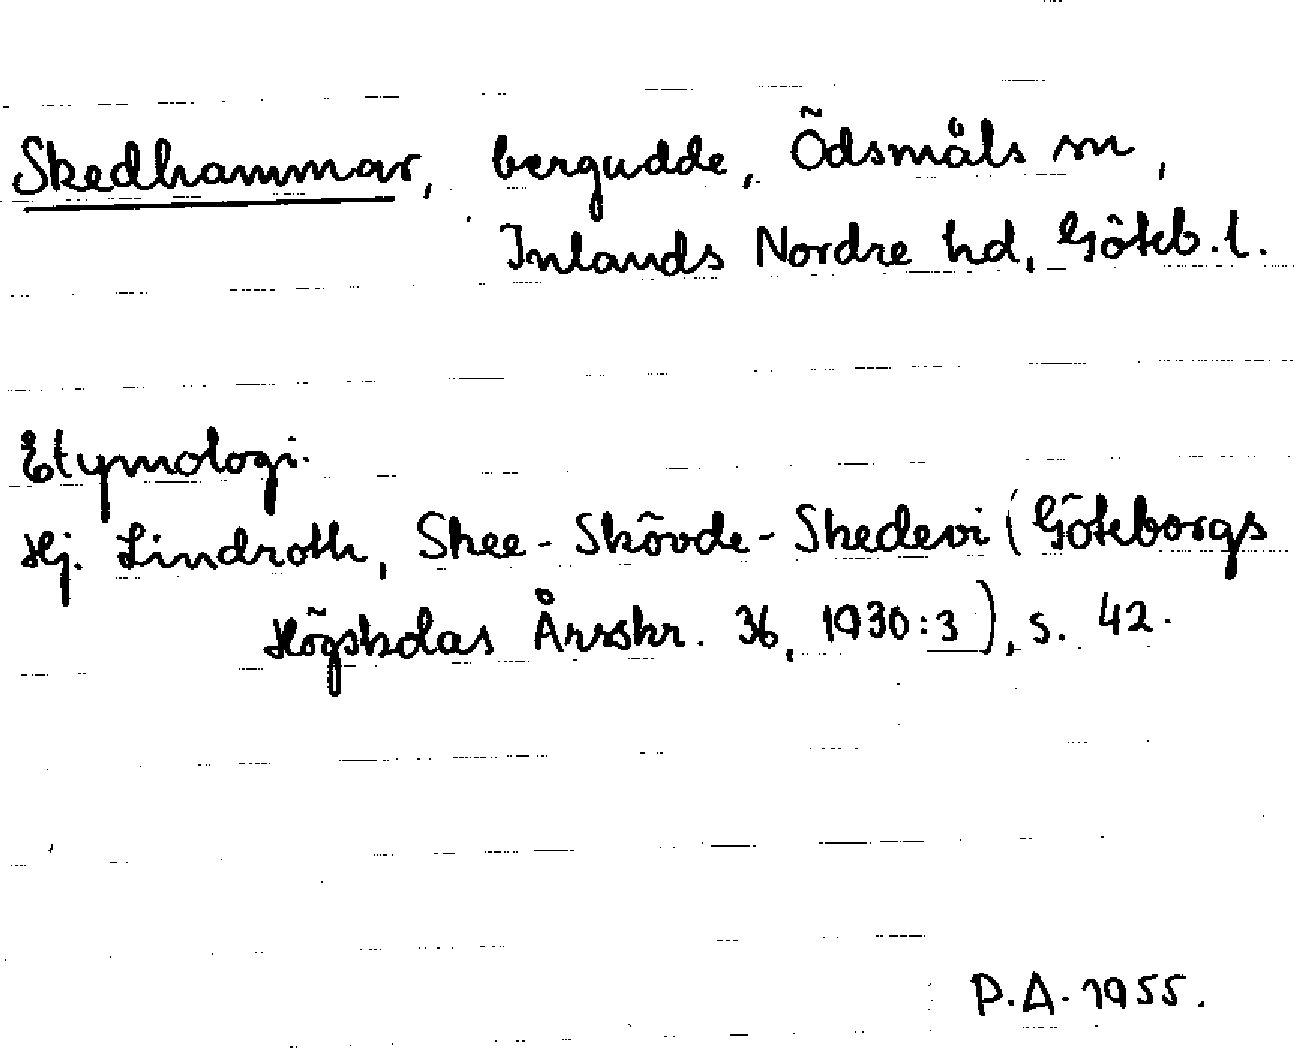 Skedhammar, bergudde, Ödsmåls sn,
Inlands Nordre hd, Göteb.l.
Etymologi.
Hj. Lindroth, Skee-Skövde-Skedevi (Göteborgs
Högskolas Årsskr. 36, 1930:3), s. 42.
P.A. 1955.